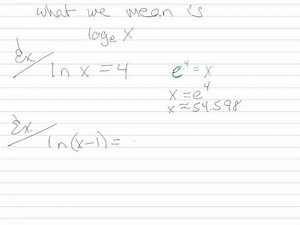 what we mean is
log_e x
Ex
ln x = 4
e^4 = x
x = e^4
x ≈ 54.598
Ex.
ln(x-1) =